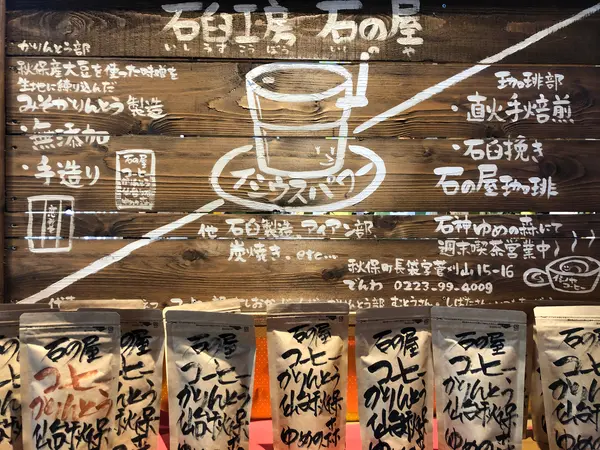 石臼工房 石の屋
いしうすこうぼう いしのや
・かりんとう部
秋保産大豆を使った味噌を
生地に練り込んだ
みそかりんとう製造
・無添加
・手造り
石の屋
コーヒー
かりんとう
仙台秋保
珈琲部
・直火手焙煎
・石臼挽き
石の屋珈琲
石神ゆめの森にて
週末喫茶営業中
他 石臼製造 アイアン部
炭焼き. etc...
秋保町長袋字菅刈山15-16
でんわ 0223-99-4009
石の屋
コーヒー
かりんとう
仙台秋保
石の屋
コーヒー
かりんとう
仙台秋保
石の屋
コーヒー
かりんとう
仙台秋保
ゆめの森
石の屋
コーヒー
かりんとう
仙台秋保
石の屋
コーヒー
かりんとう
仙台秋保
ゆめの森
石の屋
コーヒー
かりんとう
仙台秋保
ゆめの森